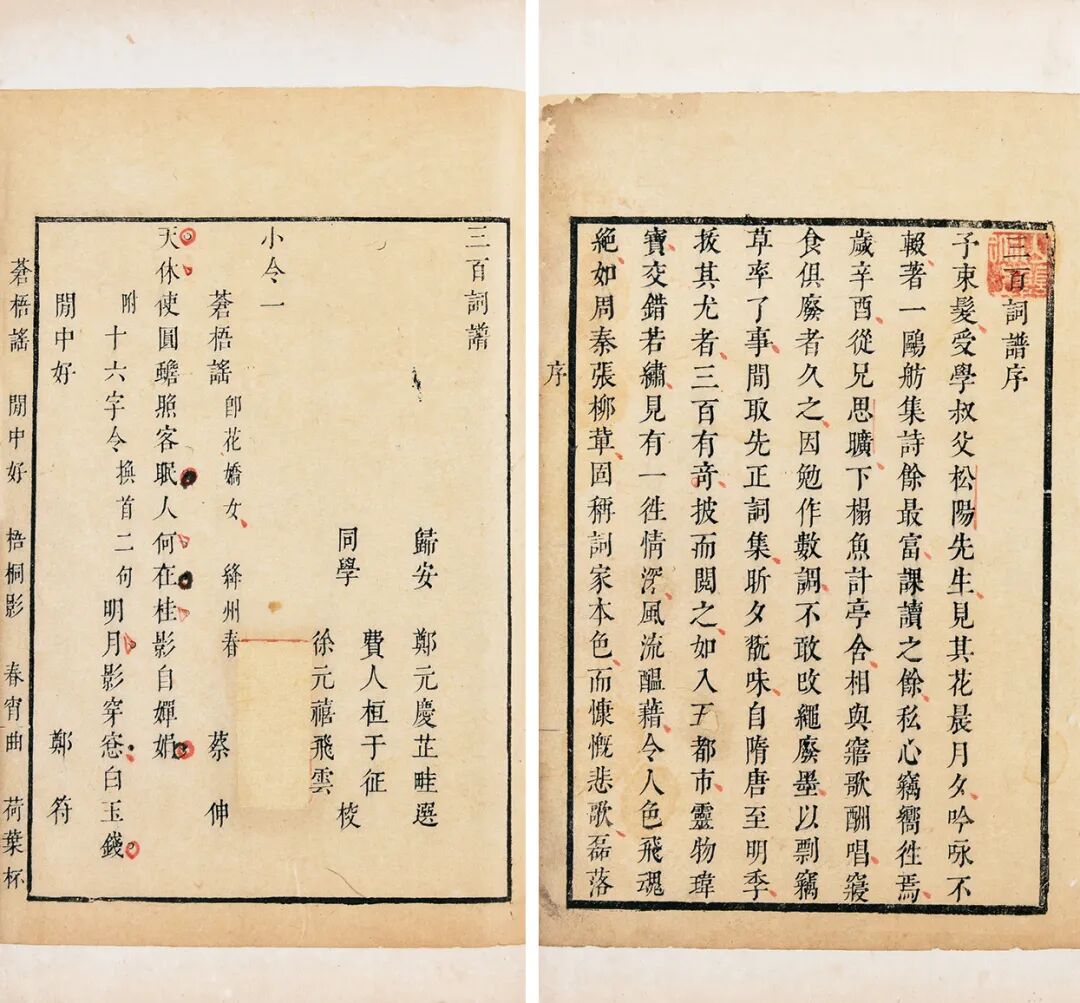 三百詞譜序
予束髮受學叔父松陽先生見其花晨月夕吟咏不
輟著一鷗舫集詩餘最富課讀之餘私心竊嚮徃焉
歲辛酉從兄思曠下榻魚計亭舍相與寤歌酬唱寢
食俱廢者久之因勉作數調不敢改繩廢墨以剽竊
草率了事間取先正詞集昕夕翫味自隋唐至明季
拔其尤者三百有奇披而閱之如入五都市靈物瑋
寶交錯若繡見有一徃情深風流醞藉令人色飛魂
絶如周秦張柳輩固稱詞家本色而慷慨悲歌磊落
序
三百詞譜
歸安 鄭元慶芷畦選
費人桓于征
同學 校
徐元禧飛雲
小令一
蒼梧謠 卽花嬌女 絳州春 蔡伸
天休使圓蟾照客眠人何在桂影自嬋娟
附 十六字令 換首二句 明月影穿窓白玉錢
閒中好 鄭符
蒼梧謠 閒中好 梧桐影 春宵曲 荷葉杯